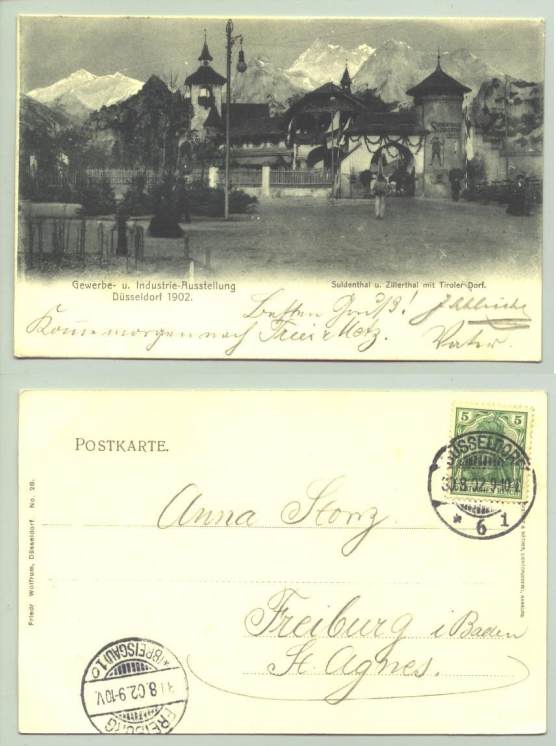 Gewerbe- u. Industrie-Ausstellung
Düsseldorf 1902.
Suldenthal u. Zillerthal mit Tiroler Dorf.
Besten Gruß!
Komme morgen nach Trier Metz.
Vater.
POSTKARTE.
5 5
DÜSSELDORF
30.8.02.9-10 V.
* 6 1
Anna Storz.
Freiburg i Baden
St. Agnes.
Friedr Wolfrum, Düsseldorf. No. 28.
FREIBURG
(BREISGAU) 1
31.8.02.9-10V.